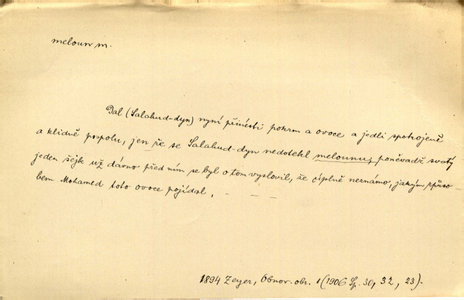 meloun m.
Dal (Salahud-dyn) nyní přinésti pokrm a ovoce a jedli spokojeně
a klidně pospolu, jen že se Salahud-dyn nedotekl melounu, poněvadž svatý
jeden šejk už dávno před ním se byl o tom vyslovil, že úplně neznámo, jakým způso-
bem Mohamed toto ovoce pojídal, – – –
1894 Zeyer, Obnov. obr. 1 (1906 Sp. 30, 32, 23).